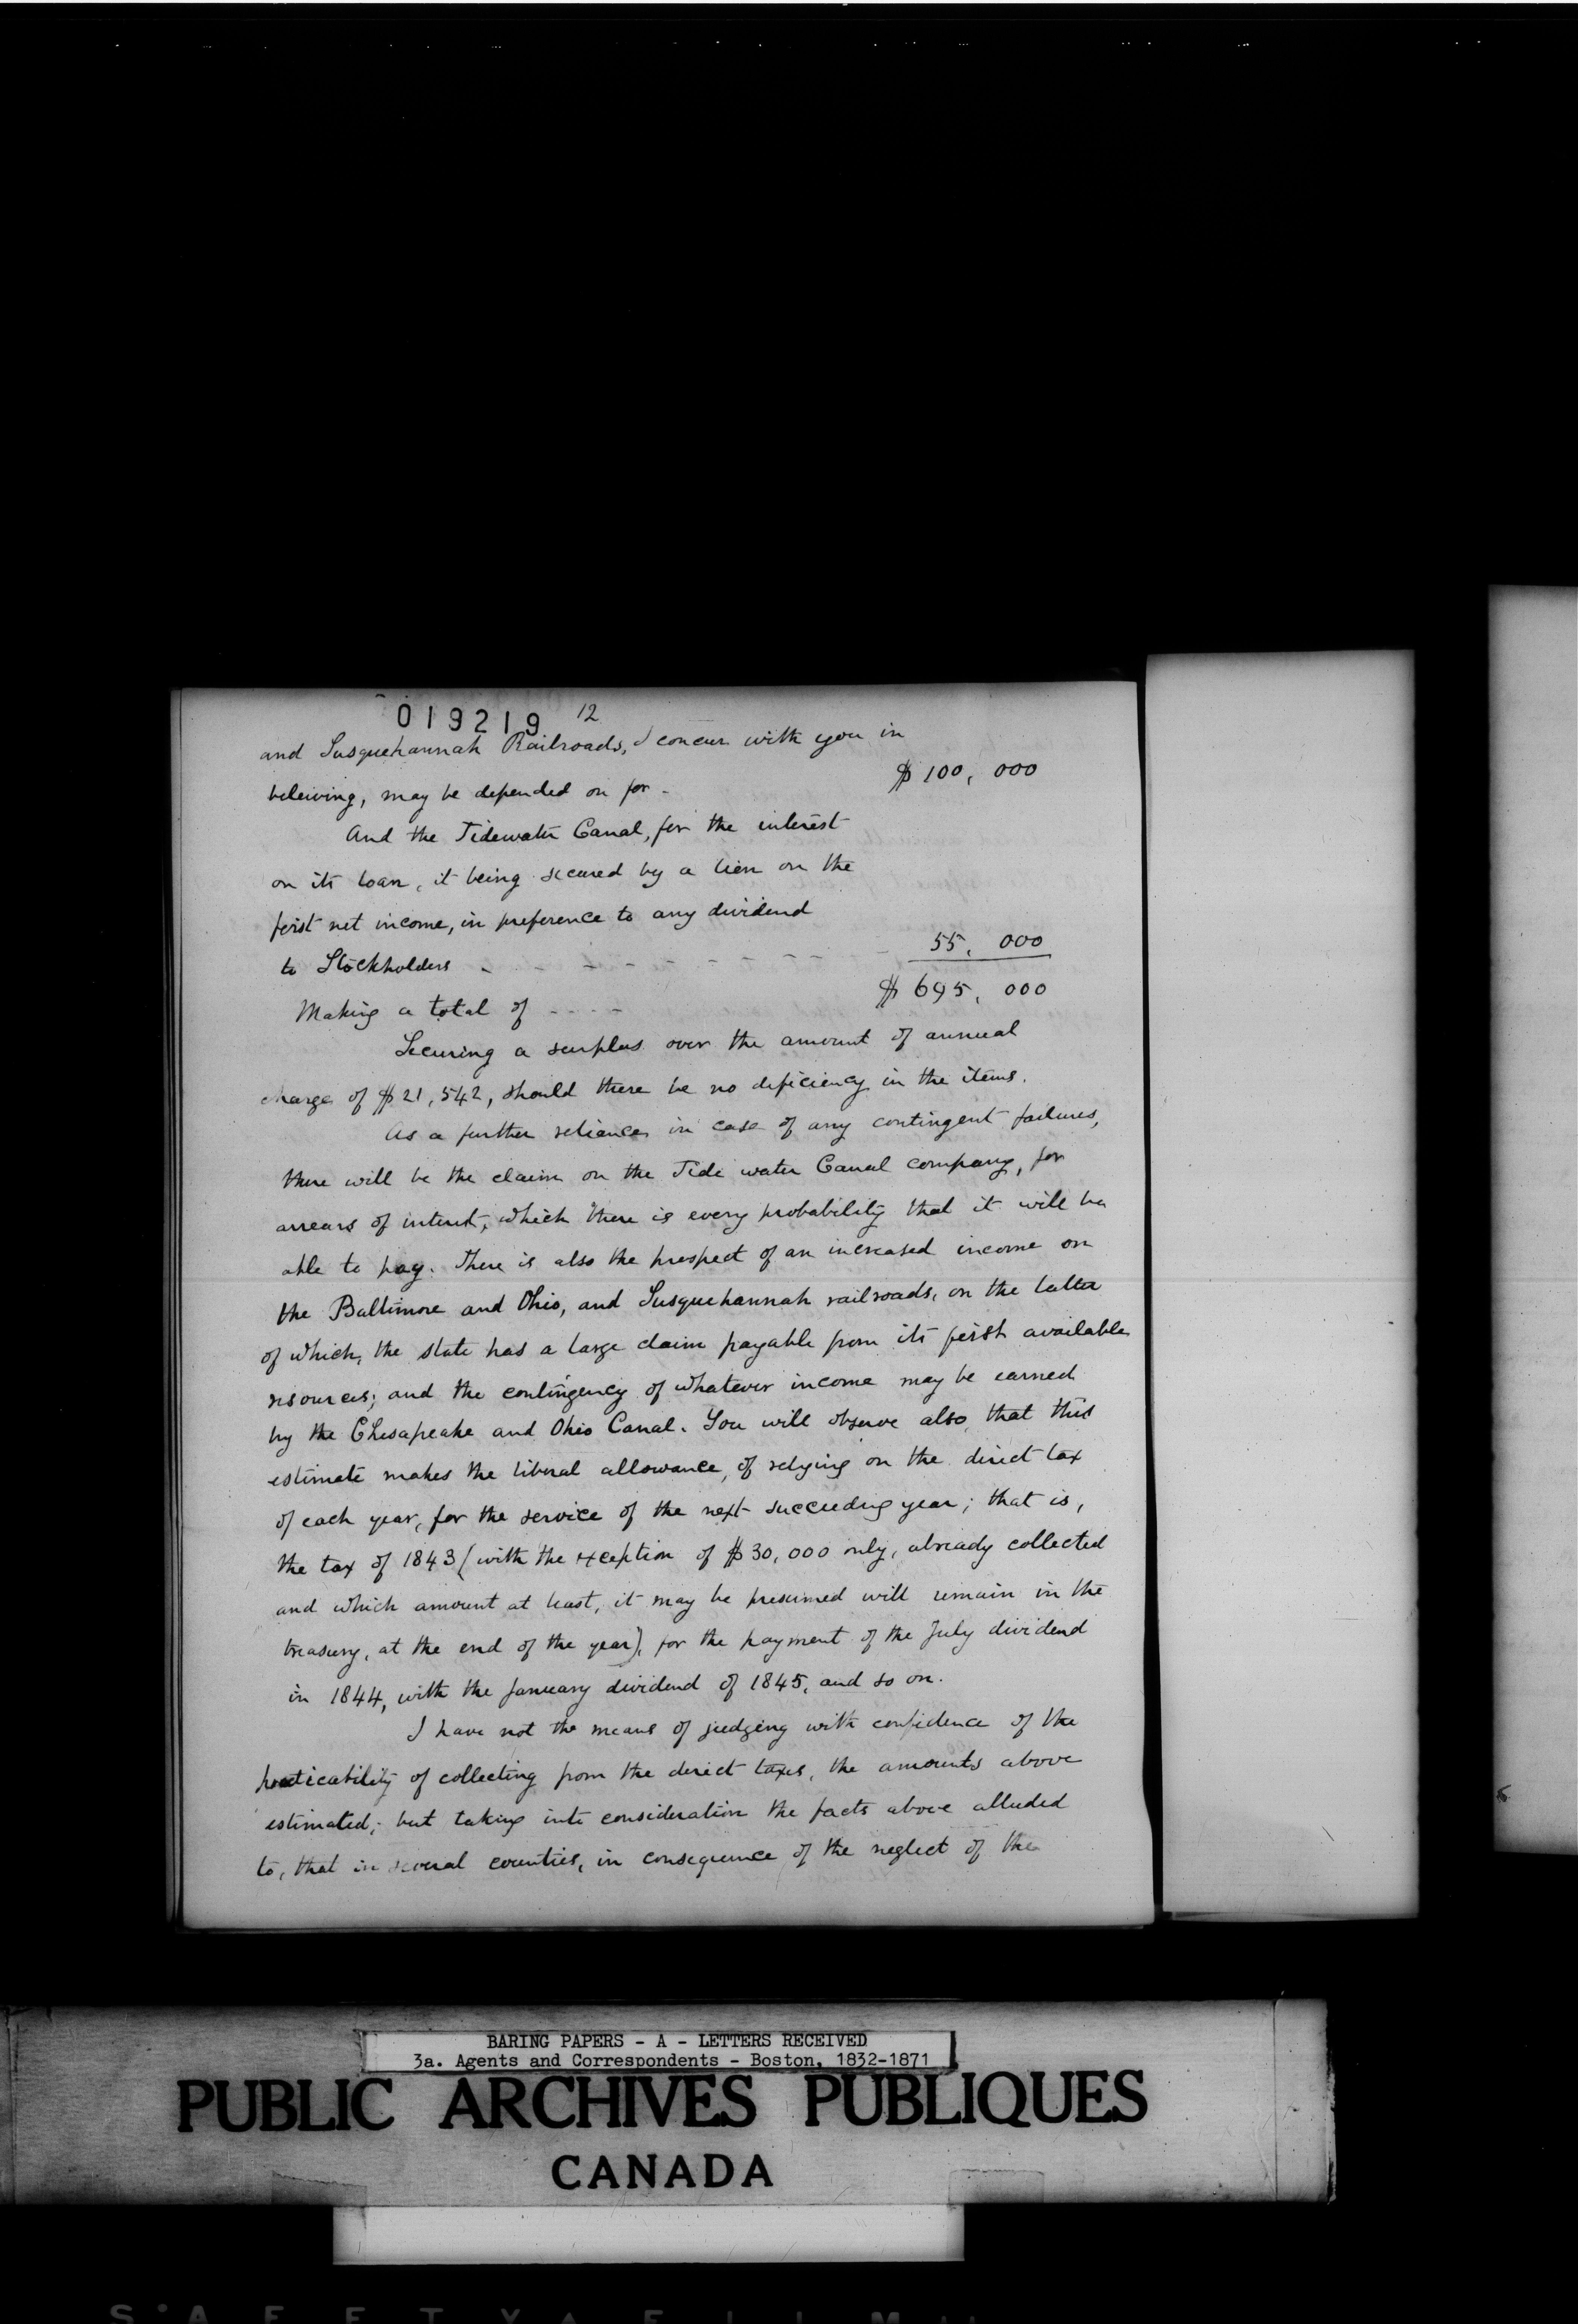 019219 12
and Susquehannah Railroads, I concur with you in
beleiving, may be depended on for - $100,000
And the Tidewater Canal, for the interest
on its loan, it being secured by a lien on the
first net income, in preference to any dividend
to Stockholders - - - - - - - - - 55,000
Making a total of - - - - $695,000
Securing a surplus over the amount of annual
charge of $21,542, should there be no deficiency in the items.
As a further reliance in case of any contingent failures,
there will be the claim on the Tide water Canal company, for
arrears of interest, which there is every probability that it will be
able to pay. There is also the prospect of an increased income on
the Baltimore and Ohio, and Susquehannah railroads, on the latter
of which, the state has a large claim payable from its first available
resources; and the contingency of whatever income may be earned
by the Chesapeake and Ohio Canal. You will observe also, that this
estimate makes the liberal allowance, of relying on the direct tax
of each year, for the service of the next succeeding year; that is,
the tax of 1843 (with the exception of $30,000 only, already collected
and which amount at least, it may be presumed will remain in the
treasury, at the end of the year), for the payment of the July dividend
in 1844, with the January dividend of 1845, and so on.
I have not the means of judging with confidence of the
practicability of collecting from the direct taxes, the amounts above
estimated; but taking into consideration the facts above alluded
to, that in several counties, in consequence of the neglect of the
BARING PAPERS - A - LETTERS RECEIVED
3a. Agents and Correspondents - Boston, 1832-1871
PUBLIC ARCHIVES PUBLIQUES
CANADA